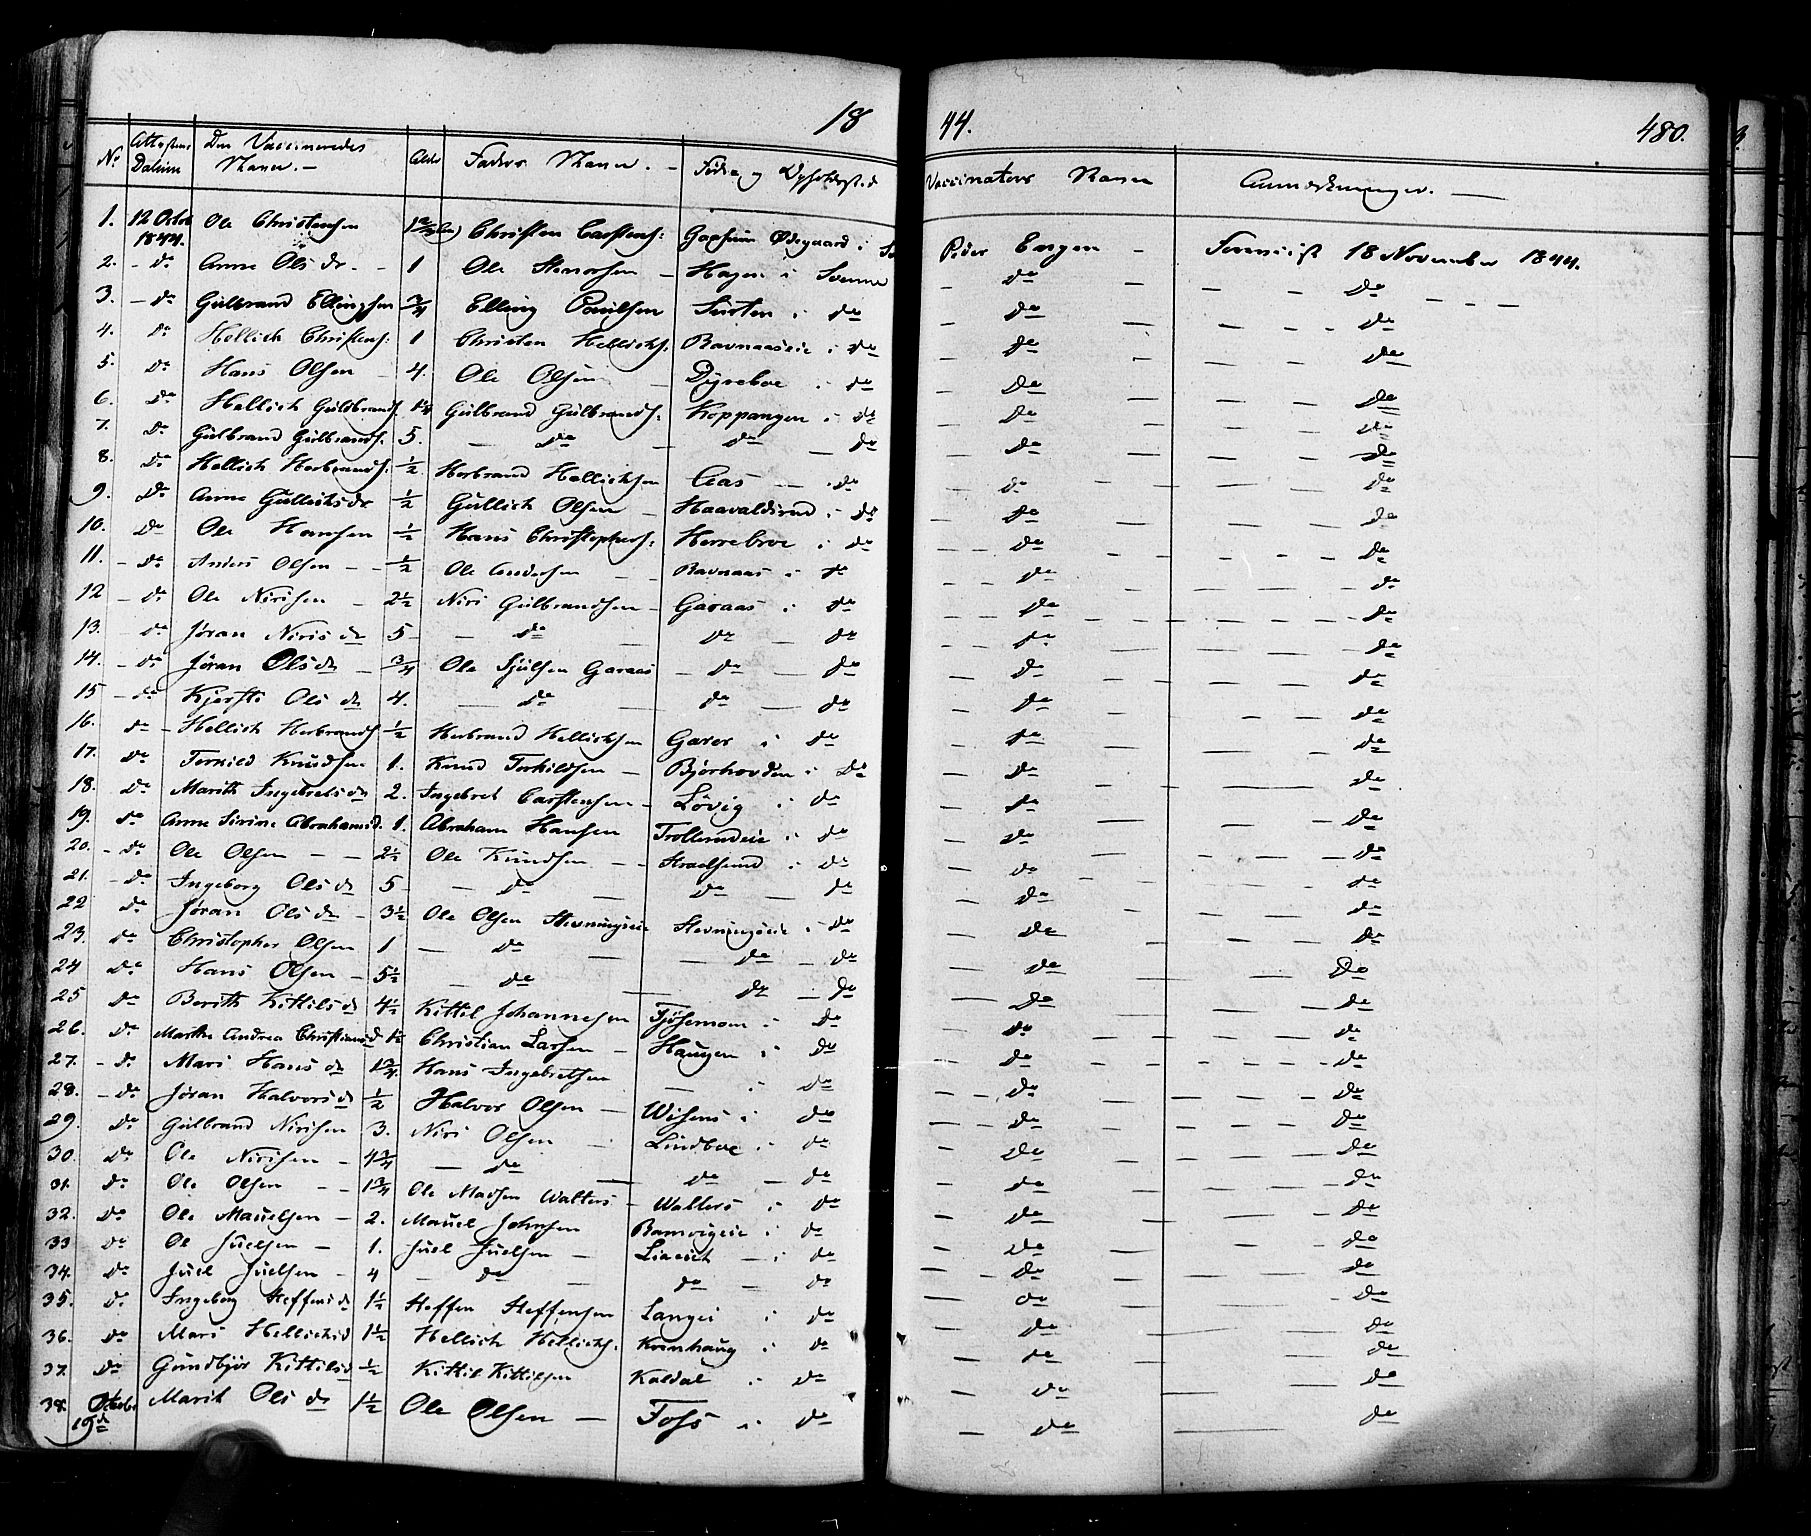 18 44. 480.
No Attestens Datum Den Vaccineredes Navn. — Alder Faders Navn. — Føde og Opholdssted Vaccinators Navn Anmærkninger. —
1. 12 Octob 1844. Ole Christensen Christen Carstens: Ødegaard i Peder Engen — Foreviist 18 November 1844.
2. — do Anne Olsdr. — 1 Ole Stenersen — Hagen i Svenne — do — — — do — — —
3. — do Gulbrand Ellingsen 3/4 Elling Poulsen i do — do — — — do
4. do Hellich Christens: 1 Christen Hellichs. Ravnaaseie i do — do — — — do
5. do Hans Olsen 4. Ole Olsen — Dyreboe i do — do — — — do
6. do Hellich Guldbrands. 1 1/4 Gulbrand Gulbrands. Koppangen i do — do — — do
7. do Gulbrand Gulbrands. 5. — do — do — do — do — — — do
8. do Hellich Herbrands. 1/2 Herbrand Hellichsen Aas — i do — do — — — do
9. do Anne Gullichsdr 1/2 Gullich Olsen — Haavaldsrud i do — do — — — do
10. do Ole Hansen 1/2 Hans Christophers: Herrebroe i do — do — — do
11. — do Anders Olsen — 1/2 Ole Andersen — Ravnaas i do — do — — — do
12 — do Ole Nirisen — 2 1/2 Niri Gulbrandsen — Garaas i do — do — — — do
13. — do Jøran Nirisdr 5 — do — do — do — do — — do
14. — do Jøran Olsdr — 3/4 Ole Sjulsen Garaas — do — do — do — — do
15 — do Kjersti Olsdr 4. — do — do — do — do — — do
16. do Hellich Herbrands. 1/2 Herbrand Hellichsen Garer i do — do — — do
17. do Torkild Knudsen 1. Knud Torkildsen — Bjørhovden i do — do — — do
18. do Marith Ingebretsdr 2. Ingebret Carstensen — Løvig i do — do — — do
19. do Anne Sirine Abrahamsd. 1. Abraham Hansen Trollerudeie i do — do — — do
20. — do Ole Olsen — — 2 1/2 Ole Knudsen — Kraelsrud i do — do — — do
21. — do Ingeborg Olsdr 5 — do — do — do — do — — do
22 do Jøran Olsdr — 3 1/2 Ole Olsen Stevningseie Stevningseie i do — do — — do
23. do Christopher Olsen 1 — do — do — do — do — — do
24 do Hans Olsen — 5 1/2 — do — do — do — do — — do
25 do Berith Kittilsdr 4 1/2 Kittil Johannesen Tjøsemoen i do — do — — do
26. do Marthe Andrea Christiansd. 1/2 Christian Larsen — Haugen i do — do — — do
27. — do Mari Hansdr 1 3/4 Hans Ingebretsen — i do — do — — do
28. — do Jøran Halvorsdr 1/2 Halvor Olsen — Wisens i do — do — — do
29. do Gulbrand Nirisen 3. Niri Olsen — Lindboe i do — do — — do
30. do Ole Nirisen — 4 3/4 — do — do — do — do — — do
31. do Ole Olsen — — 1 3/4 Ole Madsen Walters — Walters i do — do — — do
32. do Ole Mauelsen — 2. Mauel Johnsen Bamvigeie i do — do — — do
33 do Ol Juelsen — 1. Juel Juelsen — Liaeset — i do — do — — do
34. do Juel Juelsen — 4 — do — do — do — do — — do
35. do Ingeborg Steffensdr 1 1/2 Steffen Steffensen Langei i do — do — — do
36. do Mari Hellichsd 1 1/2 Hellich Hellichs. Kornhaug i do — do — — do
37. do Gundbjør Kittilsd 1/2 Kittil Kittilsen Kaldal i do — do — — do
38. October 19de Marit Olsdr 1 1/2 Ole Olsen — Foss i do — do — — do